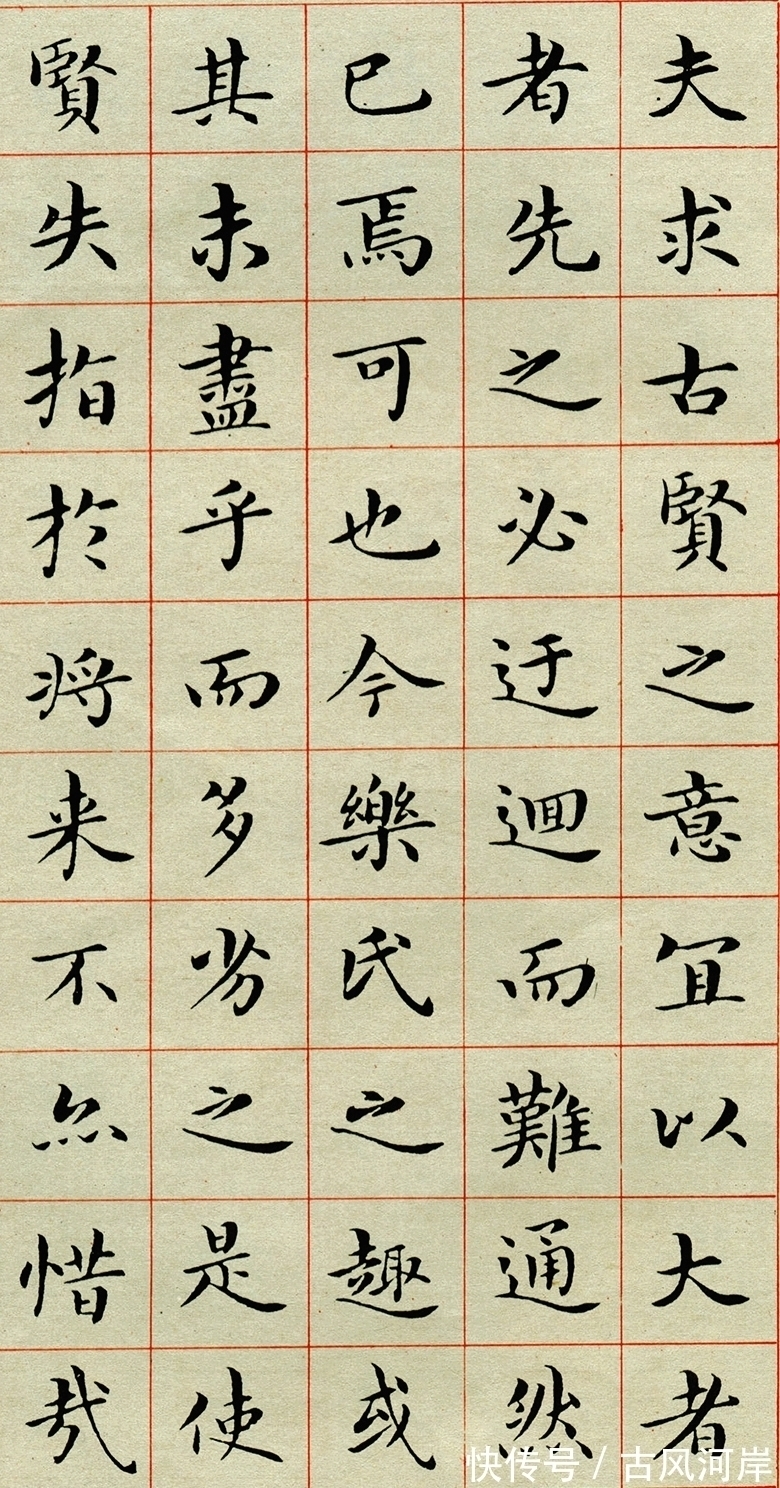 夫求古賢之意宜以大者
者先之必迂迴而難通然
已焉可也今樂氏之趣或
其未盡乎而多劣之是使
賢失指於将来不亦惜哉
快传号/古风河岸